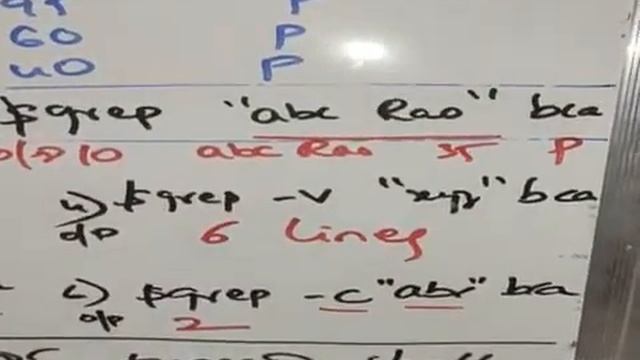 60 P
40 P
$grep "abc Rao" bca
10 abc Rao 35 P
$grep -v "xyz" bca
o/p 6 lines
c) $grep -c "abc" bca
o/p 2